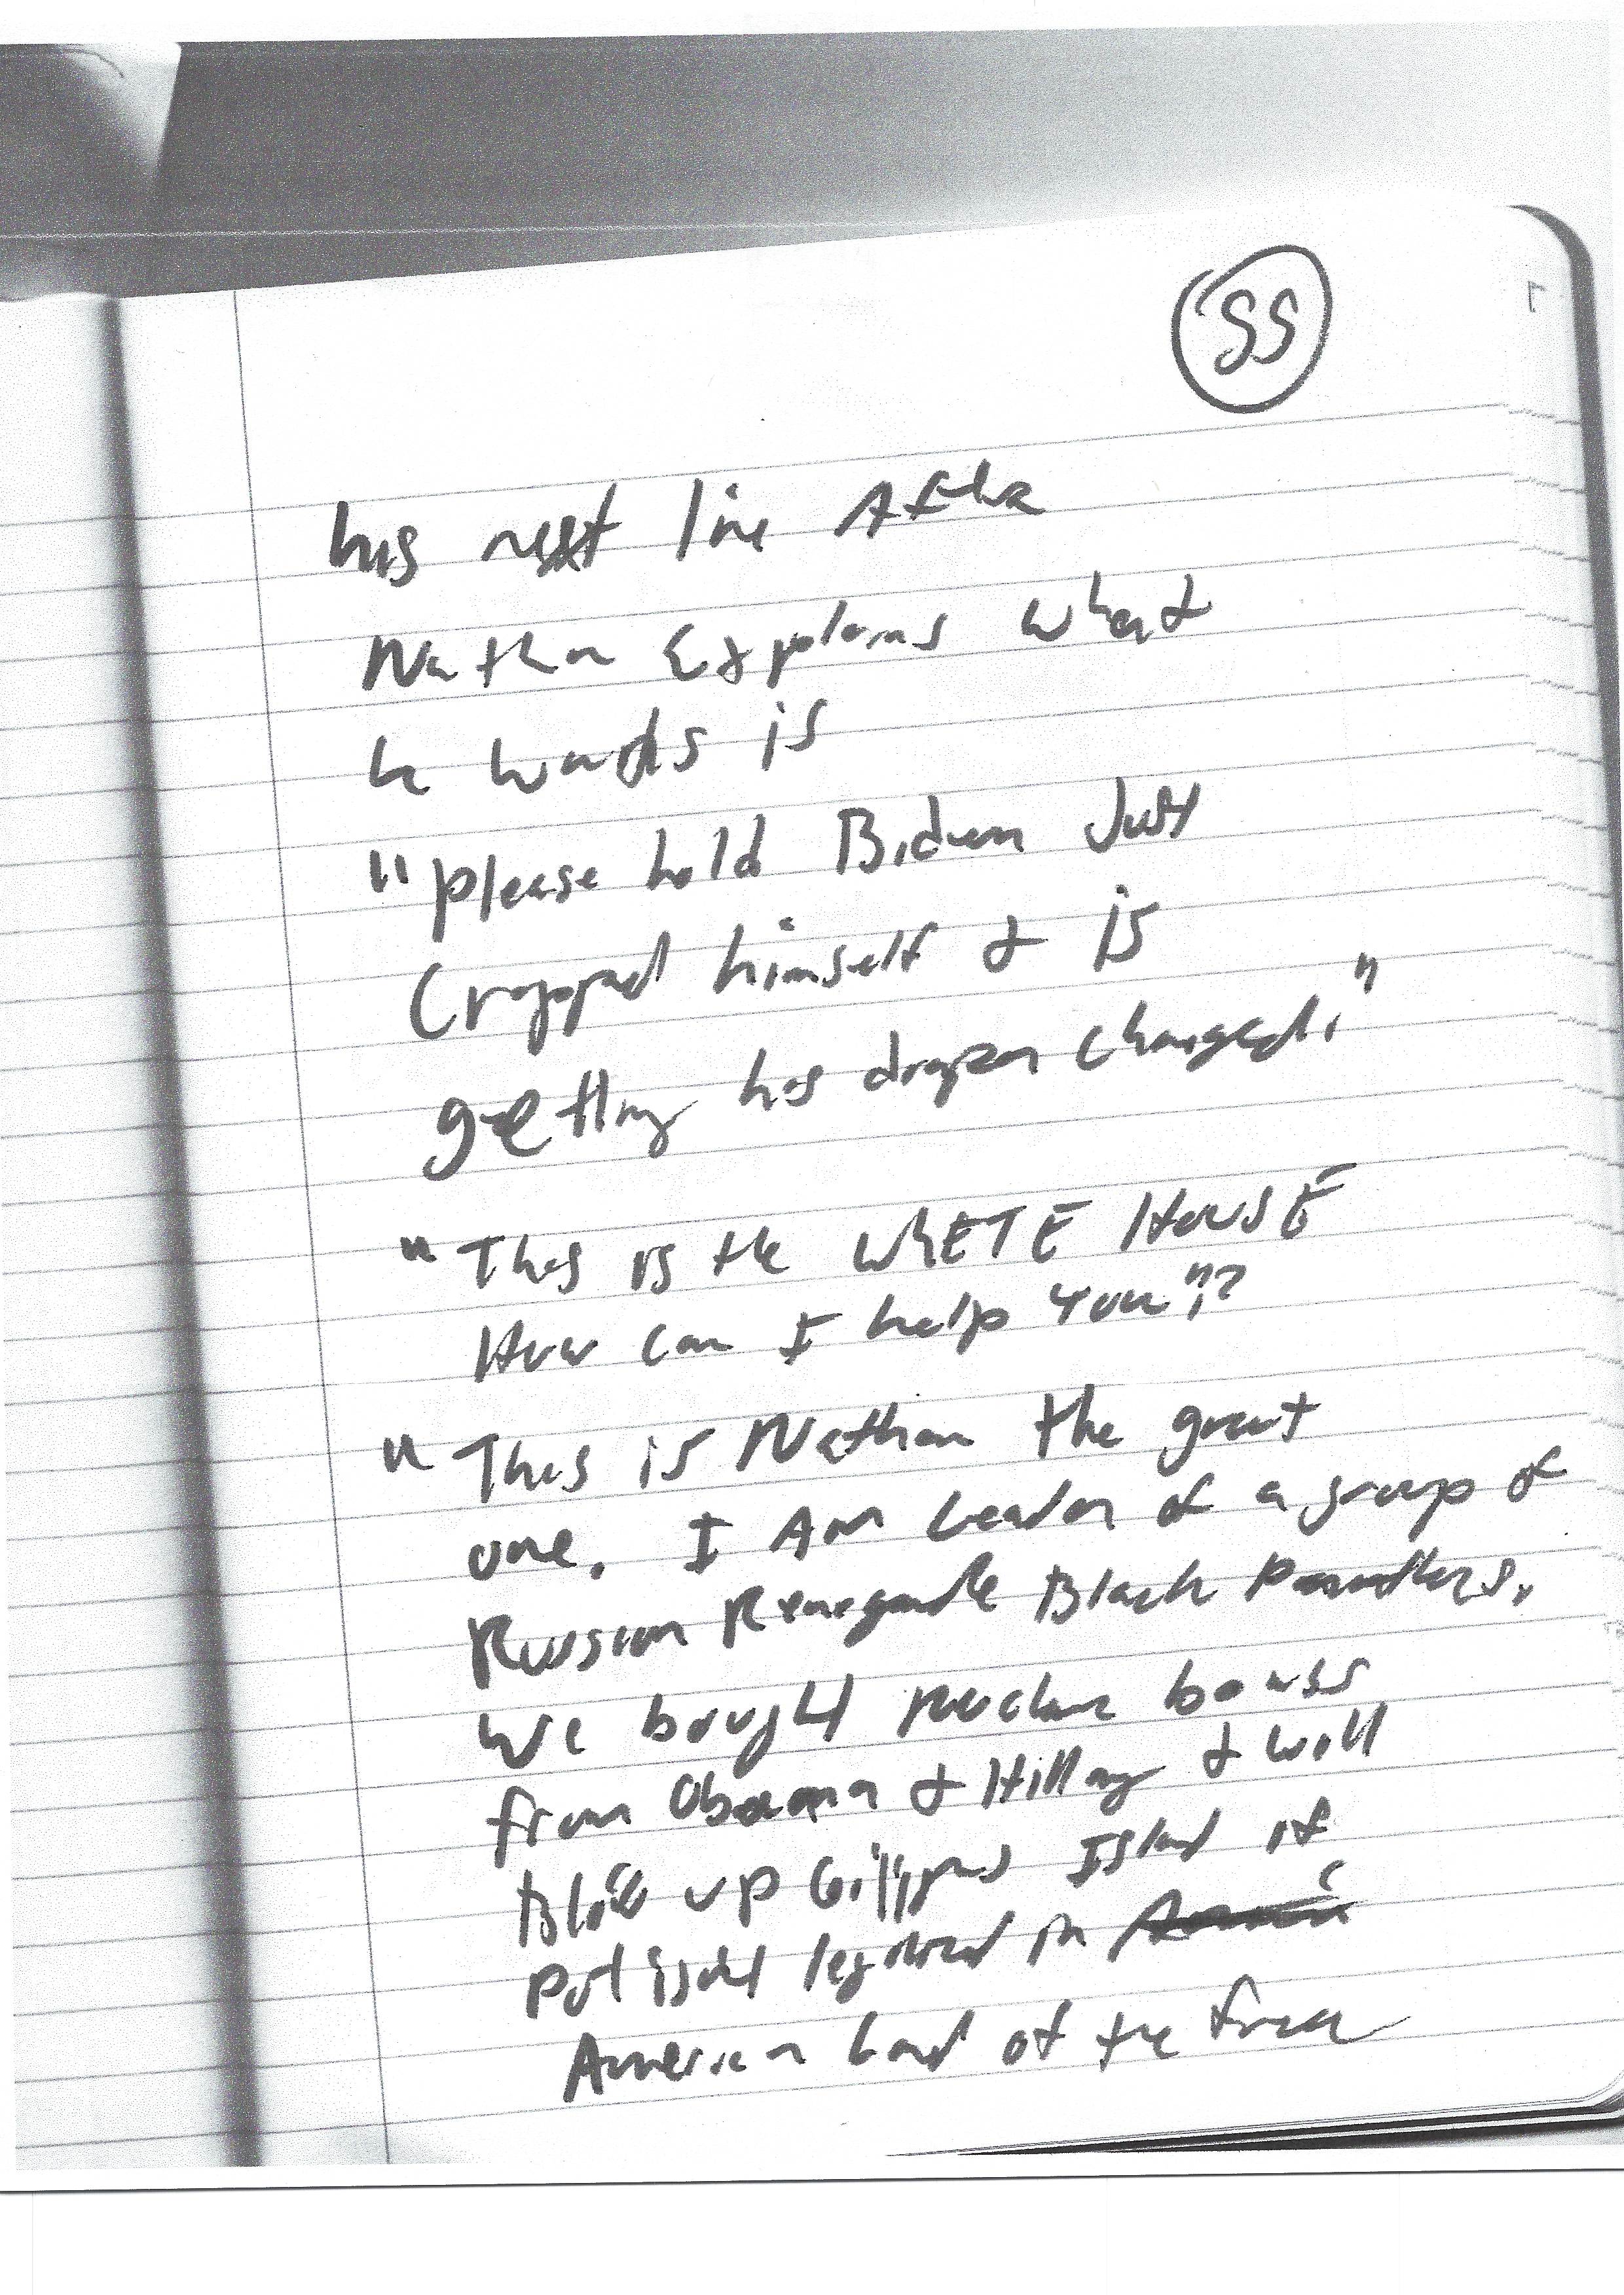 55
his next line After
Nathan Explains what
he wants is
"please hold Biden Just
Crapped himself & is
getting his diaper changed."
"This is the WHITE HOUSE
How can I help you"?
"This is Nathan the great
one. I Am Leader of a group of
Russian Renegade Black Panthers.
We bought nuclear bombs
from Obama & Hillary & will
Blow up Gilligans Island if
pot isnt legalized in
America Land of the free